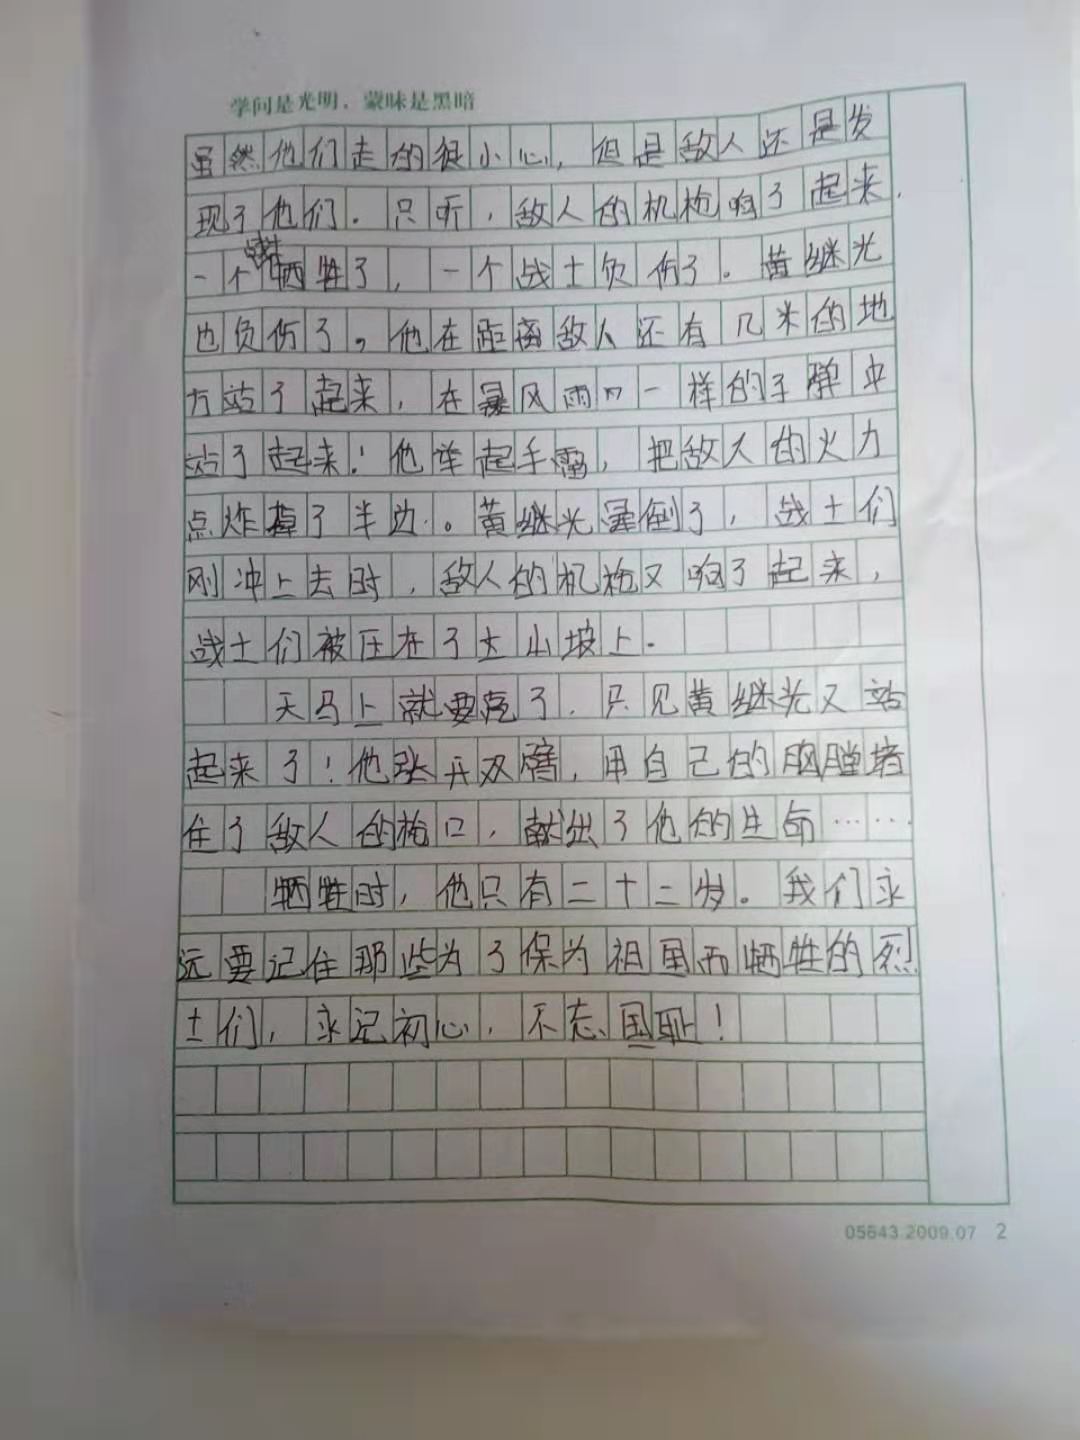 学问是光明，蒙昧是黑暗
虽然他们走的很小心，但是敌人还是发
现了他们。只听，敌人的机枪响了起来，
一个战士牺牲了，一个战士负伤了。黄继光
也负伤了。他在距离敌人还有几米的地
方站了起来，在暴风雨一样的子弹中
站了起来！他举起手雷，把敌人的火力
点炸掉了半边。黄继光晕倒了，战士们
刚冲上去时，敌人的机枪又响了起来，
战士们被压在了土山坡上。
天马上就要亮了，只见黄继光又站
起来了！他张开双臂，用自己的胸膛堵
住了敌人的枪口，献出了他的生命……
牺牲时，他只有二十二岁。我们永
远要记住那些为了保为祖国而牺牲的烈
士们，永记初心，不忘国耻！
05643.2009.07 2